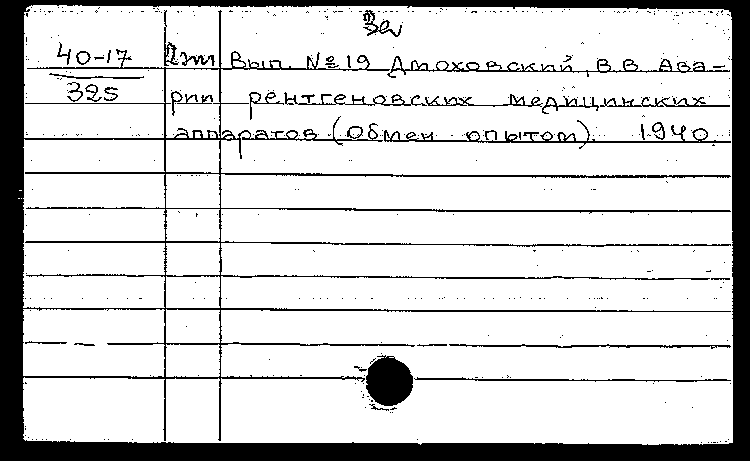 За
40-17 2эт Вып. №19 Дмоховский, В.В. Ава-
325 рии рентгеновских медицинских
аппаратов (Обмен опытом). 1940.